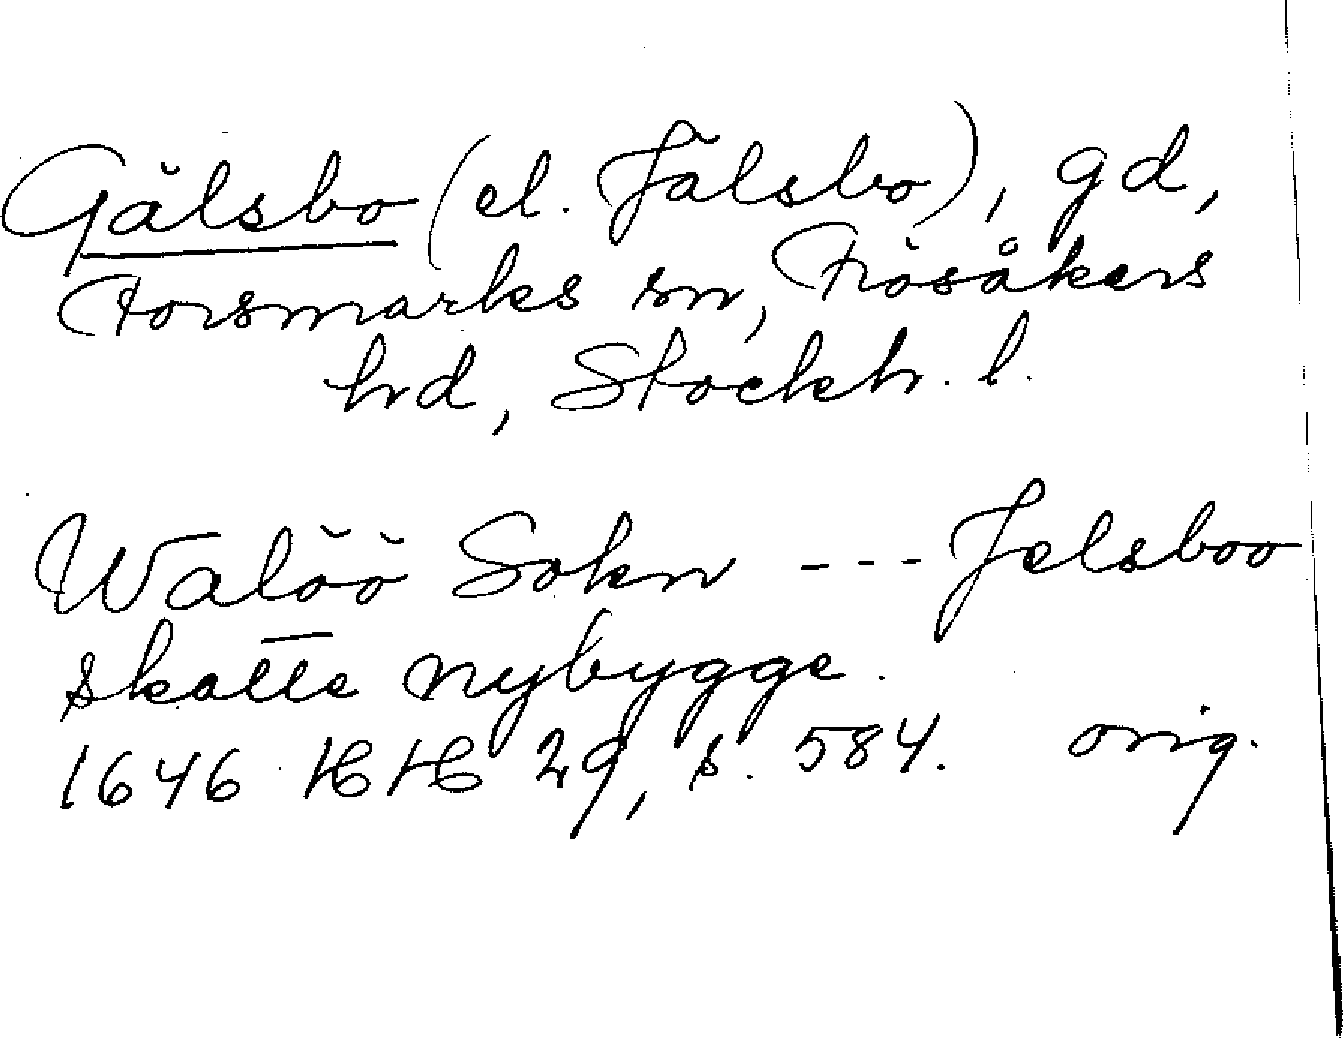 Gälsbo (el. Jälsbo), gd,
Forsmarks sn, Frösåkers
hrd, Stockh. l.
Walöö Sokn --- Jelsboo
skatte nybygge.
1646 HH 29, s. 584. orig.